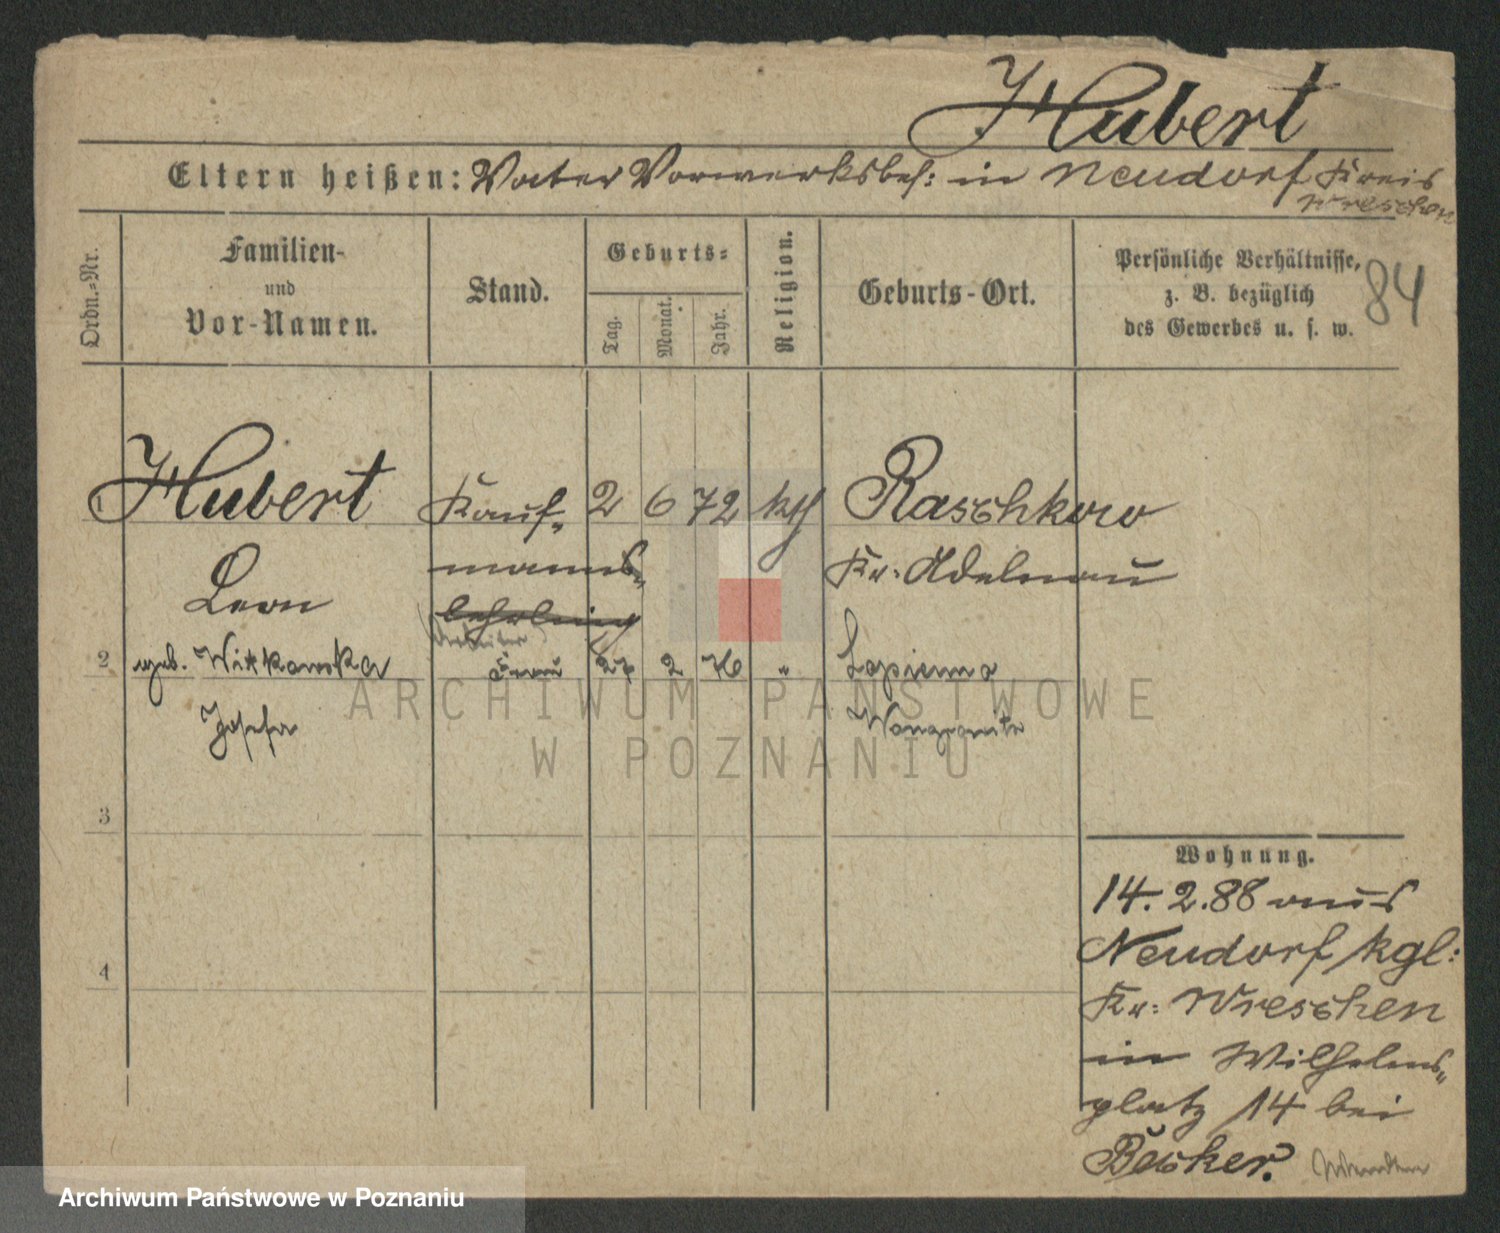 Hubert
Eltern heißen: Vater Vorwerksbes: in Neudorf Kreis
Wreschen
Ordn.-Nr.
Familien-
und
Vor-Namen.
Stand.
Geburts-
Tag.
Monat.
Jahr.
Religion.
Geburts-Ort.
Persönliche Verhältnisse,
z. B. bezüglich
des Gewerbes u. s. w.
84
Hubert Kauf- 2 6 72 kth Raschkow
Leon manns- Kr: Adelnau
lehrling
2 geb. Witkowska Frau 27 2 76 " Lopienno
Josefa Wongrowitz
3
4
Wohnung.
14. 2. 88 aus
Neudorf kgl:
Kr: Wreschen
in Wilhelms-
platz 14 bei
Becker.
ARCHIWUM PAŃSTWOWE
W POZNANIU
Archiwum Państwowe w Poznaniu